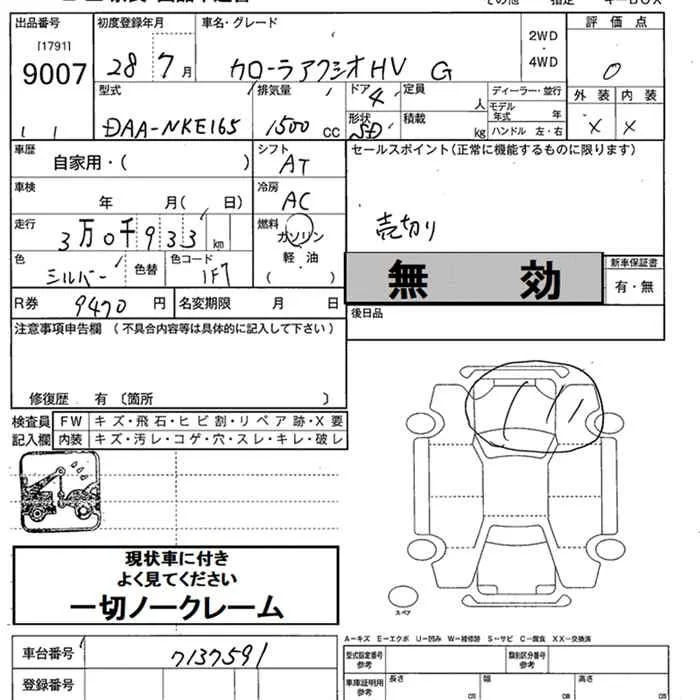 出品番号 初度登録年月 車名・グレード 評価点
[1791]
9007
28 7月 カローラアクシオHV G
2WD
・
4WD
0
型式 排気量 ドア 4 定員 人 ディーラー・並行 外装 内装
モデル年式 年
DAA-NKE165 1500 CC 形状 SD 積載 kg ハンドル 左・右 X X
車歴 自家用・( ) シフト AT セールスポイント(正常に機能するものに限ります)
車検 年 月( 日) 冷房 AC
走行 3万0千933km 燃料 ガソリン 売切り
軽油
( )
色 シルバー 色替 色コード 1F7
無効
新車保証書
有・無
R券 9470円 名変期限 月 日 後日品
注意事項申告欄(不具合内容等は具体的に記入して下さい)
修復歴 有〔箇所 〕
検査員 FW キズ・飛石・ヒビ割・リペア跡・X要
記入欄 内装 キズ・汚レ・コゲ・穴・スレ・キレ・破レ
現状車に付き
よく見てください
一切ノークレーム
スペア
A-キズ E-エクボ U-凹み W-補修跡 S-サビ C-腐食 XX-交換済
車台番号 7137591
型式指定番号 参考 類別区分番号 参考
登録番号
車庫証明用 参考 長さ cm 幅 cm 高さ cm